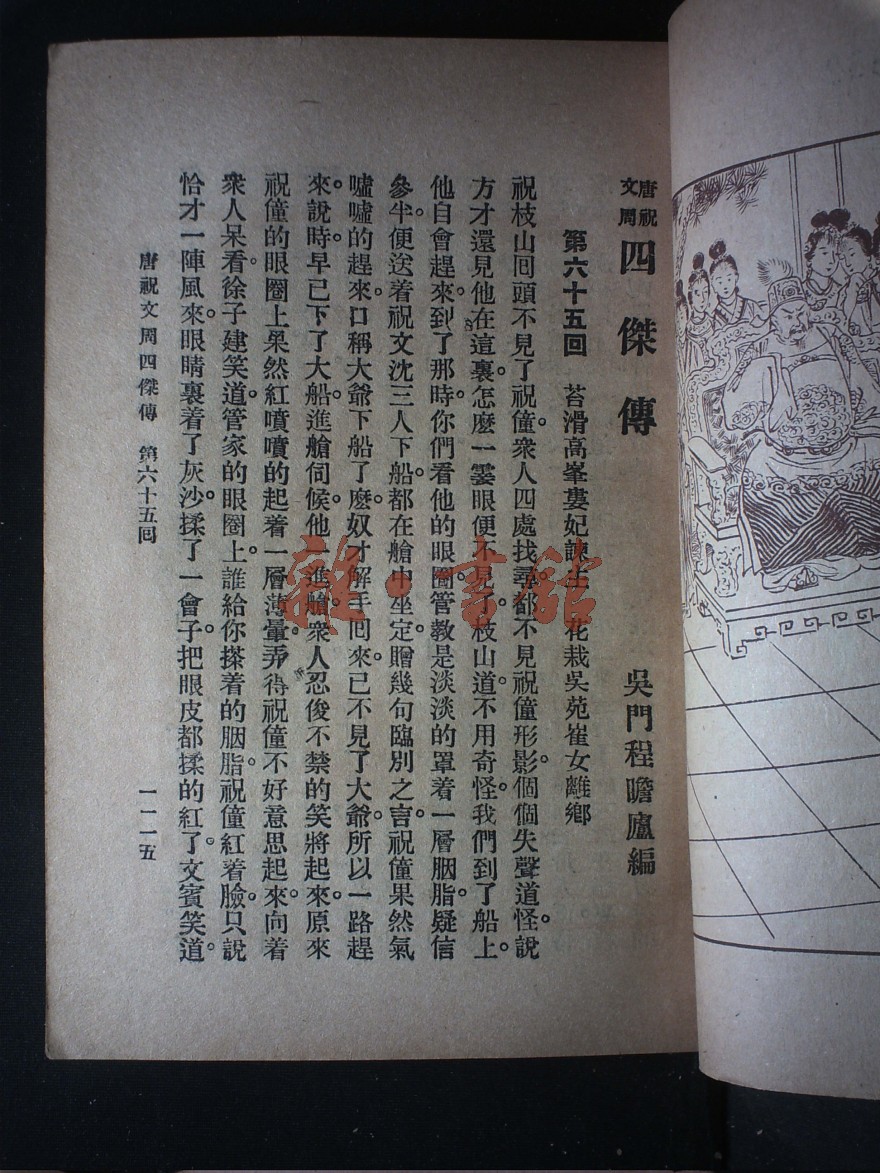 唐祝文周 四傑傳
吳門程瞻廬編
第六十五回 苔滑高峯婁妃諫主 花栽吳苑崔女離鄉
祝枝山回頭不見了祝僮。衆人四處找尋。都不見祝僮形影。個個失聲道怪。說
方才還見他在這裏。怎麼一霎眼便不見了。枝山道。不用奇怪。我們到了船上。
他自會趕來。到了那時。你們看他的眼圈。管教是淡淡的罩着一層胭脂。疑信
參半。便送着祝文沈三人下船。都在艙中坐定。贈幾句臨別之言。祝僮果然氣
噓噓的趕來。口稱大爺下船了麼。奴才解手回來。已不見了大爺。所以一路趕
來。說時。早已下了大船。進艙伺候。他一進艙。衆人忍俊不禁的笑將起來。原來
祝僮的眼圈上。果然紅噴噴的起着一層薄暈。弄得祝僮不好意思起來。向着
衆人呆看。徐子建笑道。管家的眼圈上。誰給你搽着的胭脂。祝僮紅着臉。只說
恰才一陣風來。眼睛裏着了灰沙。揉了一會子。把眼皮都揉的紅了。文賓笑道。
唐祝文周四傑傳 第六十五回
一一一五
雜·書館